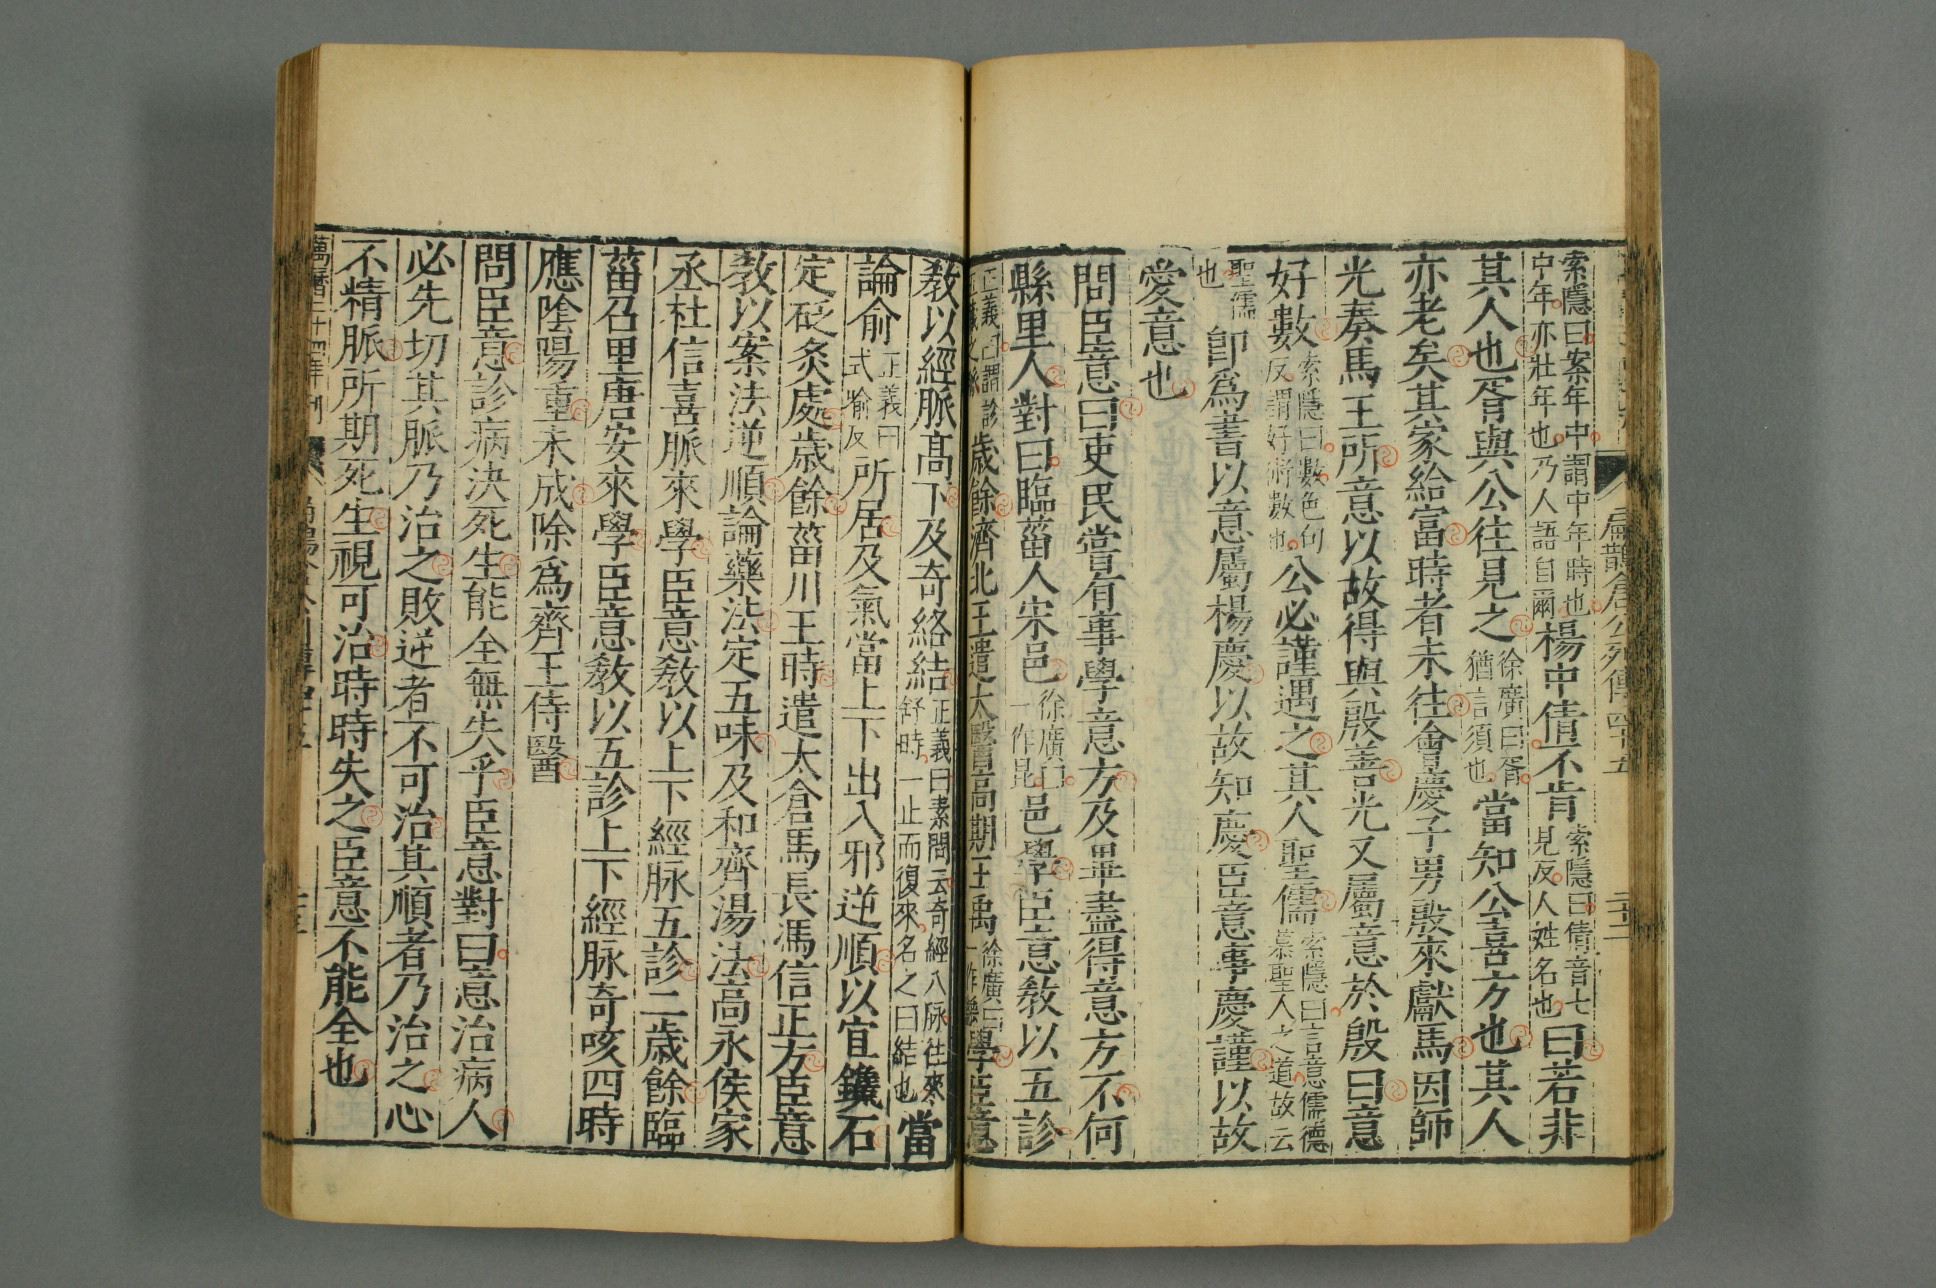 扁鵲倉公列傳四十五 二十二
索隱曰案年中謂中年時也中年亦壯年也乃人語自爾楊中倩不肯索隱曰倩音七見反人姓名也曰若非
其人也胥與公往見之徐廣曰胥猶言須也當知公喜方也其人
亦老矣其家給富時者未往會慶子男殷來獻馬因師
光奏馬王所意以故得與殷善光又屬意於殷曰意
好數索隱曰數色句反謂好術數也公必謹遇之其人聖儒索隱曰言意儒德慕聖人之道故云
聖儒也即爲書以意屬楊慶以故知慶臣意事慶謹以故
愛意也
問臣意曰吏民嘗有事學意方及畢盡得意方不何
縣里人對曰臨菑人宋邑徐廣曰一作昆邑學臣意教以五診
正義曰謂診五臟之脉歲餘濟北王遣太醫高期王禹徐廣曰一作學臣意
教以經脈高下及奇絡結正義曰素問云奇經八脉往來舒時一止而復來名之曰結也當
論俞正義曰式喻反所居及氣當上下出入邪逆順以宜鑱石
定砭灸處歲餘菑川王時遣太倉馬長馮信正方臣意
教以案法逆順論藥法定五味及和齊湯法高永侯家
丞杜信喜脈來學臣意教以上下經脉五診二歲餘臨
菑召里唐安來學臣意教以五診上下經脉奇咳四時
應陰陽重未成除爲齊王侍醫
問臣意診病決死生能全無失乎臣意對曰意治病人
必先切其脈乃治之敗逆者不可治其順者乃治之心
不精脈所期死生視可治時時失之臣意不能全也
萬曆二十四年刊